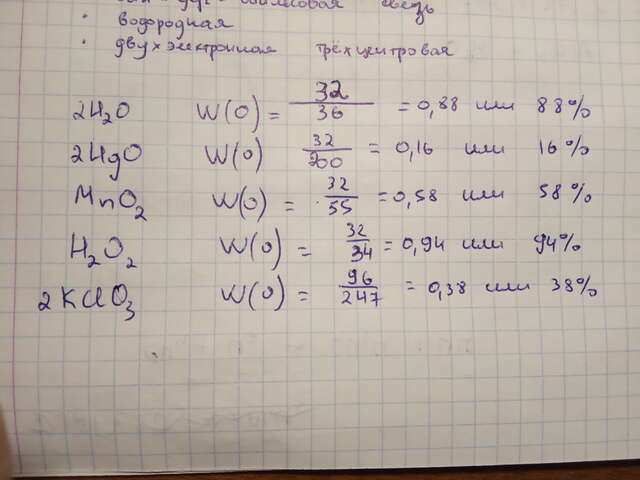 связь
· водородная
· двухэлектронная трёхцентровая
2H₂O W(O) = 32/36 = 0,88 или 88%
2HgO W(O) 32/200 = 0,16 или 16%
MnO₂ W(O) = 32/55 = 0,58 или 58%
H₂O₂ W(O) = 32/34 = 0,94 или 94%
2KClO₃ W(O) = 96/247 = 0,38 или 38%